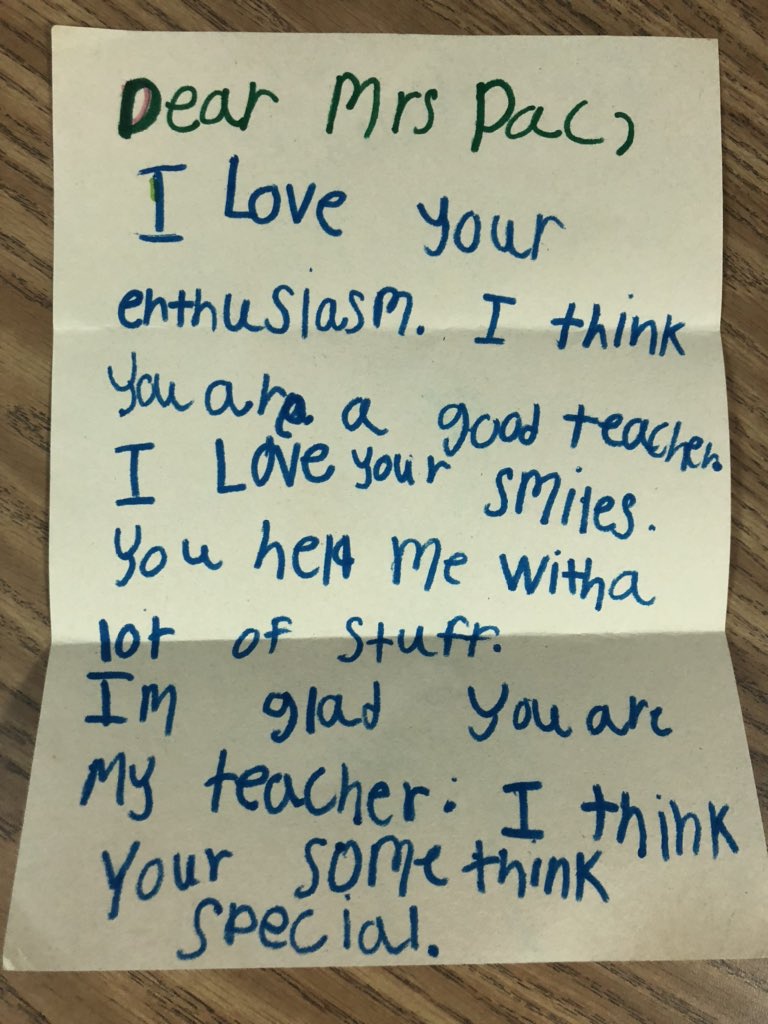 Dear Mrs Pac,
I Love your
enthusiasm. I think
you are a good teacher.
I Love your smiles.
you help me with a
lot of stuff.
Im glad you are
My teacher. I think
your some think
special.